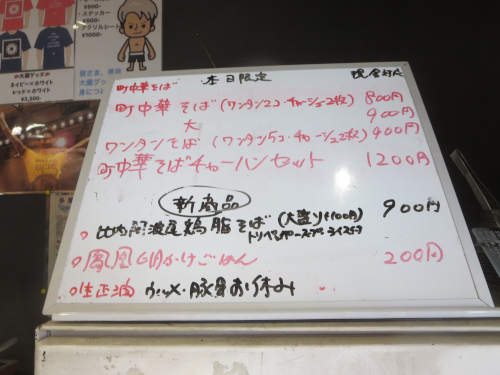 ¥800-
・ステッカー
¥800-
アクリルシート
¥1000-
大蔵グッズ
ネイビー×ホワイト
レッド×ホワイト
¥3,500-
本日限定
町中華そば
町中華そば(ワンタン2コ・チャーシュー2枚) 800円
大 900円
ワンタンそば(ワンタン5コ・チャーシュー2枚) 900円
町中華そばチャーハンセット 1200円
新商品
比内阿波尾鶏脂そば(大盛り+100円) 900円
鳳凰卵かけごはん 200円
生正油
お休み